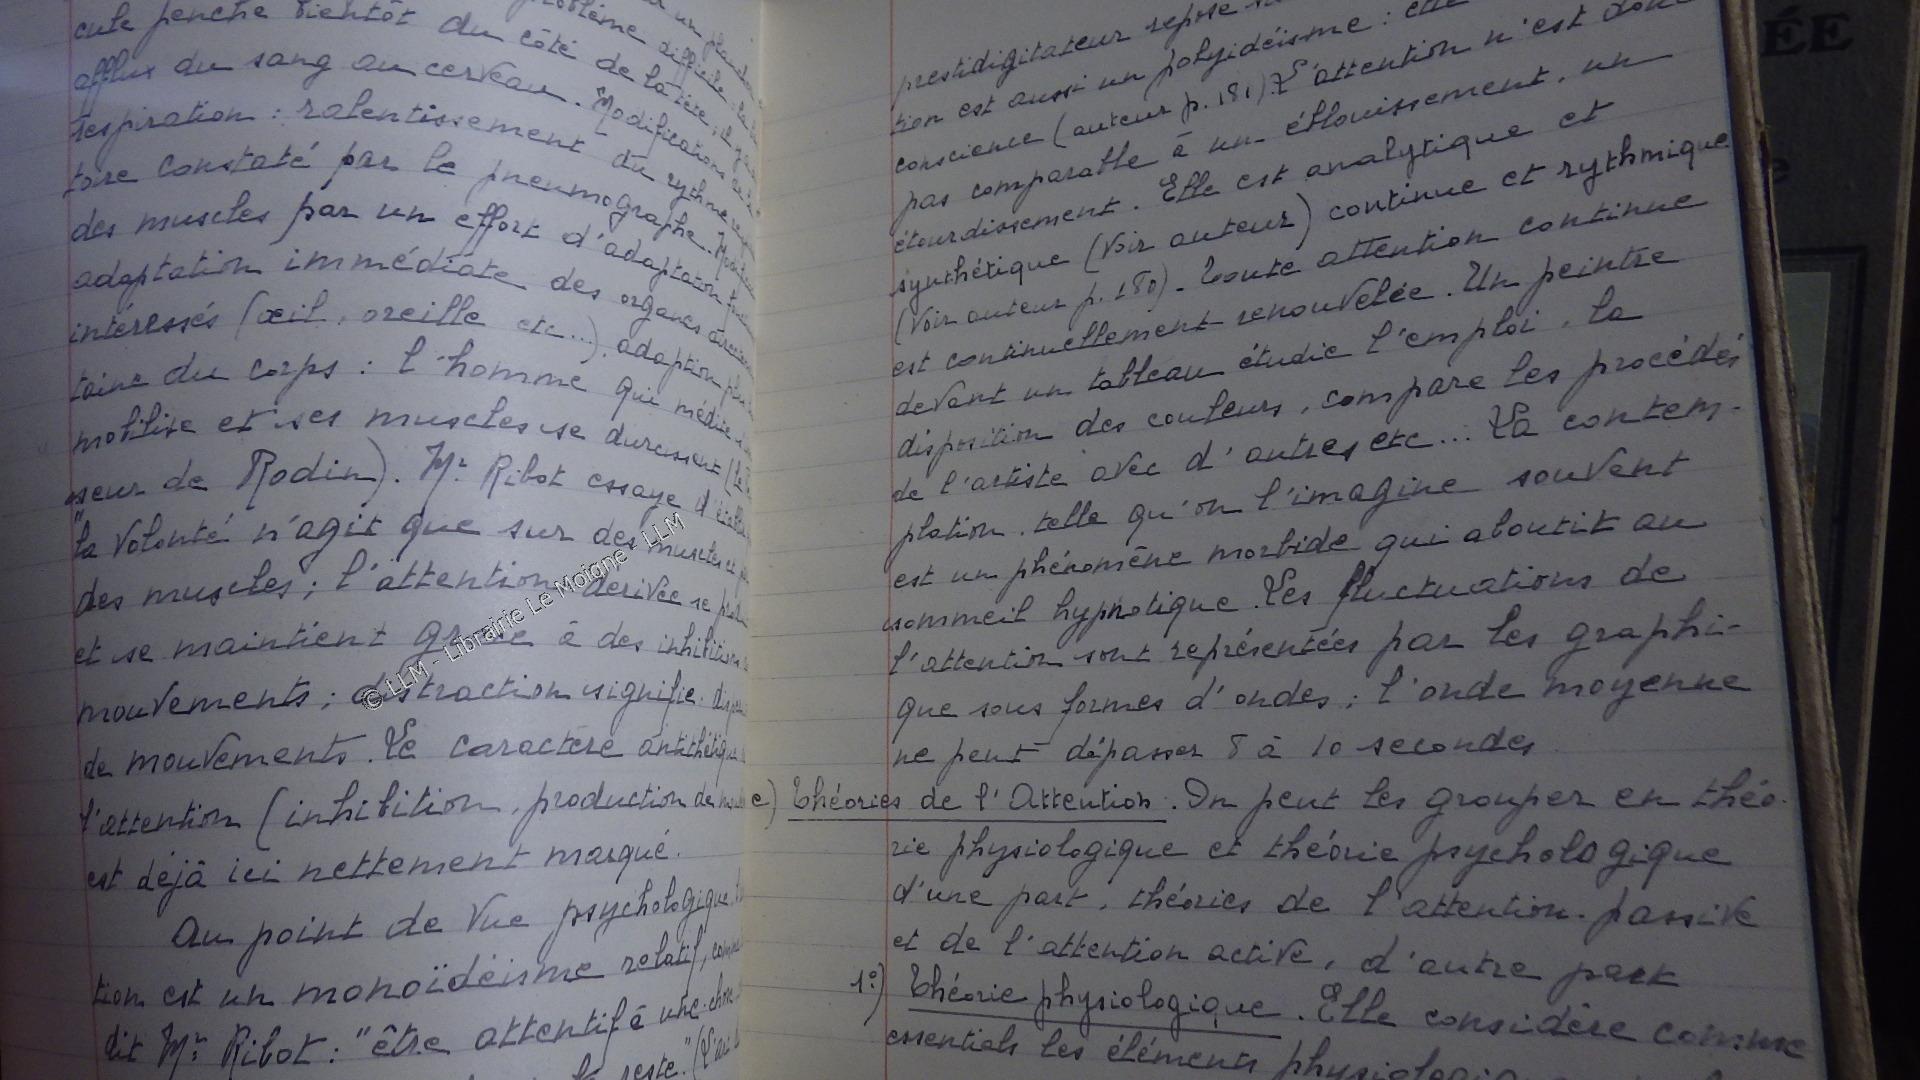 cule penche bientôt du côté de la tête, il y a
afflux du sang au cerveau. Modifications de la
respiration : ralentissement du rythme
toire constaté par le pneumographe.
des muscles par un effort d'adaptation
adaptation immédiate des organes
intéressés (œil, oreille etc...), adaption
taine du corps : l'homme qui médite
mobilise et ses muscles se durcissent (Le
seur de Rodin). Mr Ribot essaye d'établir
"la volonté n'agit que sur des muscles et
des muscles ; l'attention dérivée se
et se maintient grâce à des inhibitions
mouvements ; distraction signifie :
de mouvements. Le caractère antithétique
l'attention (inhibition, production de
est déjà ici nettement marqué.
Au point de vue psychologique,
tion est un monoïdéisme relatif,
dit Mr Ribot : "être attentif à une chose
reste."
prestidigitateur repose
tion est aussi un polyidéisme :
conscience (auteur p. 181) L'attention n'est donc
pas comparable à un éblouissement, un
étourdissement. Elle est analytique et
synthétique (Voir auteur) continue et rythmique
(Voir auteur p. 180). Toute attention continue
est continuellement renouvelée. Un peintre
devant un tableau étudie l'emploi, la
disposition des couleurs, compare les procédés
de l'artiste avec d'autres etc... La contem-
plation, telle qu'on l'imagine souvent
est un phénomène morbide qui aboutit au
sommeil hypnotique. Les fluctuations de
l'attention sont représentées par les graphi-
que sous formes d'ondes ; l'onde moyenne
ne peut dépasser 8 à 10 secondes
c) Théories de l'Attention. On peut les grouper en théo-
rie physiologique et théorie psychologique
d'une part, théories de l'attention passive
et de l'attention active, d'autre part
1º) Théorie physiologique. Elle considère comme
essentiels les éléments
ÉE
© LLM - Librairie Le Moigne - LLM